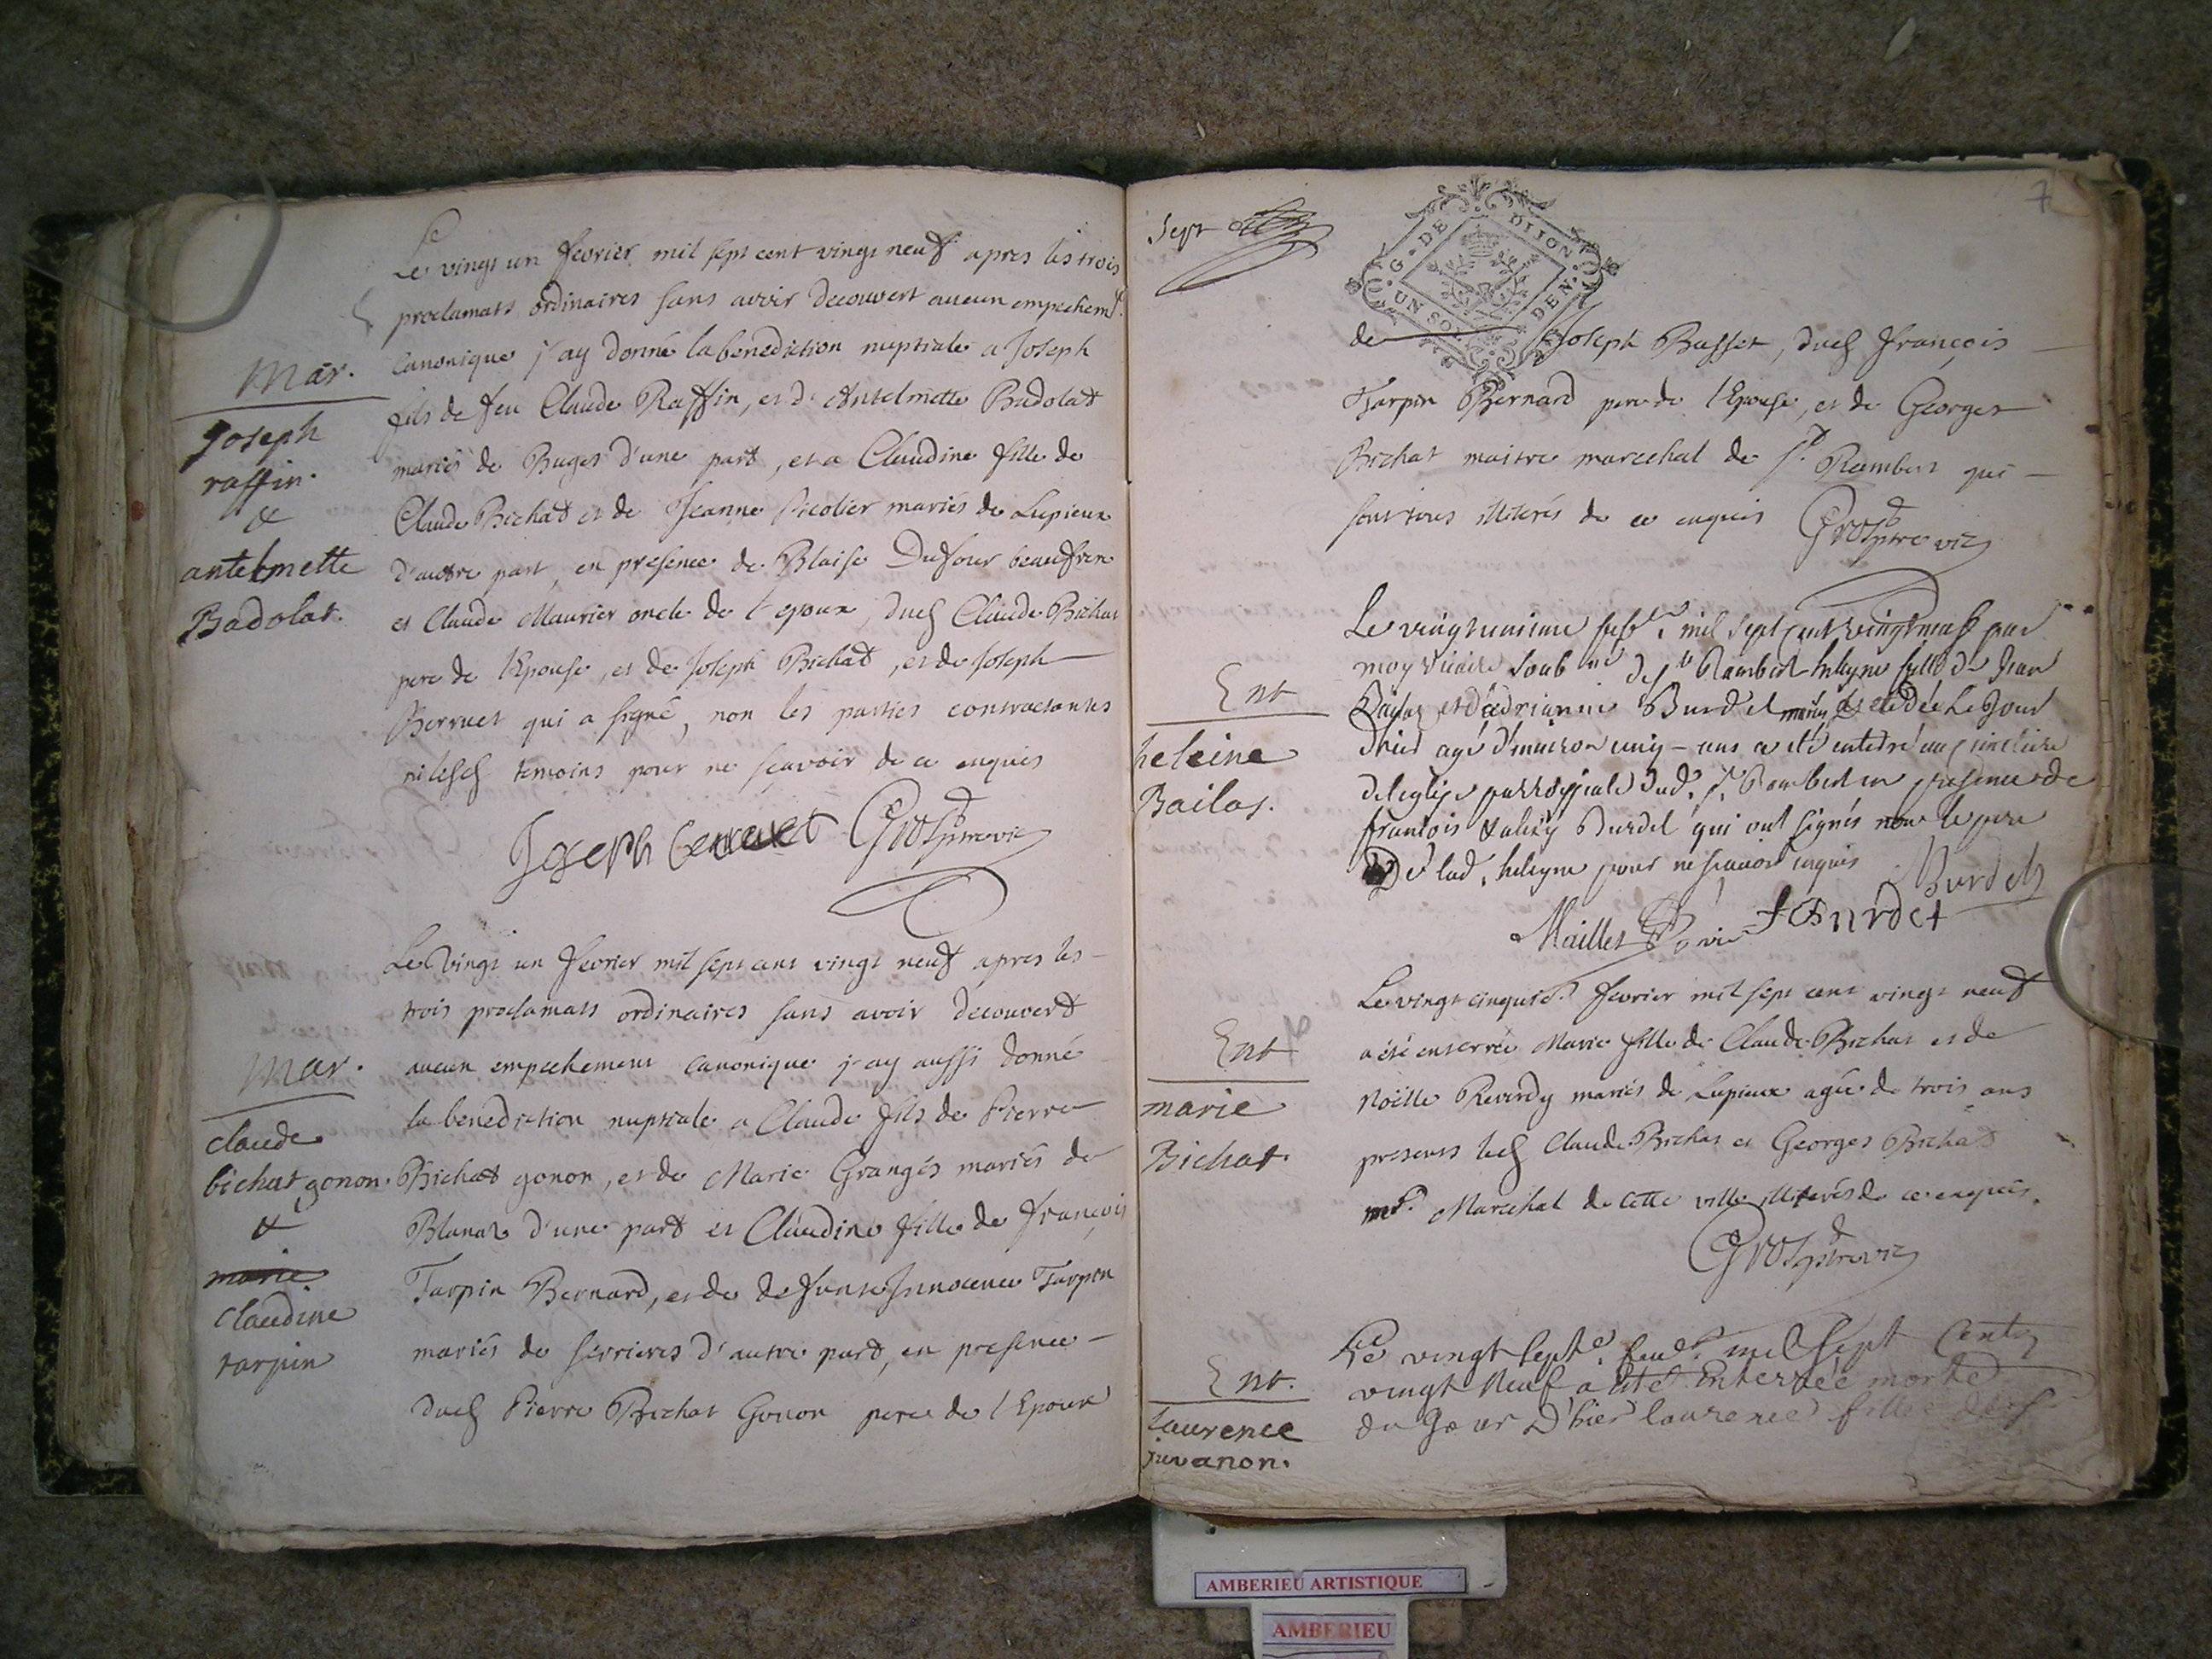 Le vingt un fevrier mil sept cent vingt neuf apres les trois
proclamats ordinaires sans avoir decouvert aucun empechemt.
Mar.
canonique j'ay donné la benediction nuptiale a Joseph
fils de feu Claude Raffin, et d'Antelmette Badolat
Joseph
raffin.
&
antelmette
Badolat.
mariés de Buges d'une part, et a Claudine fille de
Claude Bichat et de Jeanne Picolier mariés de Lupieux
d'autre part, en presence de Blaise Dufour beaufrere
et Claude Maurier oncle de l'epoux, dud Claude Bichat
pere de l'Epouse, et de Joseph Bichat, et de Joseph
Berruet qui a signé, non les parties contractantes
ni lesd temoins pour ne scavoir de ce enquis
Joseph berruet Grosptrevic
Le Vingt un fevrier mil sept cent vingt neuf apres les
trois proclamats ordinaires sans avoir decouvert
Mar.
aucun empechement canonique j'ay aussi donné
la benediction nuptiale a Claude fils de Pierre
claude
bichat gonon.
&
marie
claudine
tarpin
Bichat gonon, et de Marie Grangés mariés de
Blanaz d'une part et Claudine fille de François
Tarpin Bernard, et de defunte Innocence Tarpin
mariés de serrieres d'autre part, en presence
dud Pierre Bichat Gonon pere de l'Epoux
7
Sept
G. DE DIJON
UN SOL DEN.
de Joseph Basset, dud François
Tarpin Bernard pere de l'Epouse, et de Georges
Bichat maitre marechal de St. Rambert qui
sont tous illiterés de ce enquis Grosptrevic
Ent
heleine
Bailas.
Le vingtunieme febr. mil sept cent vingtneuf par
moy vicaire soub né de St Rambert heleyne fille de Jean
Bailas et d'adrianne Burdel mariés decedée le jour
d'hier agé d'environ cinq ans a eté enterré au cimetiere
de leglise parroissiale dud. St. Rambert en presence de
francois & alexy Burdel qui ont signés non le pere
De lad. heleyne pour ne scavoir enquis
Burdel
Maillet vic f Burdet
Ent
marie
Bichat.
Le vingt cinquie. fevrier mil sept cent vingt neuf
a été enterrée Marie fille de Claude Bichat et de
Noëlle Reverdy mariés de Lupieux agée de trois ans
presents led Claude Bichat et Georges Bichat
me. Marechal de cette ville illiterés de ce enquis.
Grosptrevic
Ent.
laurence
juvanon.
Le vingt septe. feur. mil sept Cent
vingt Neuf a été Enterrée morte
du Jour D'hier laurence fille de
AMBERIEU ARTISTIQUE
AMBERIEU